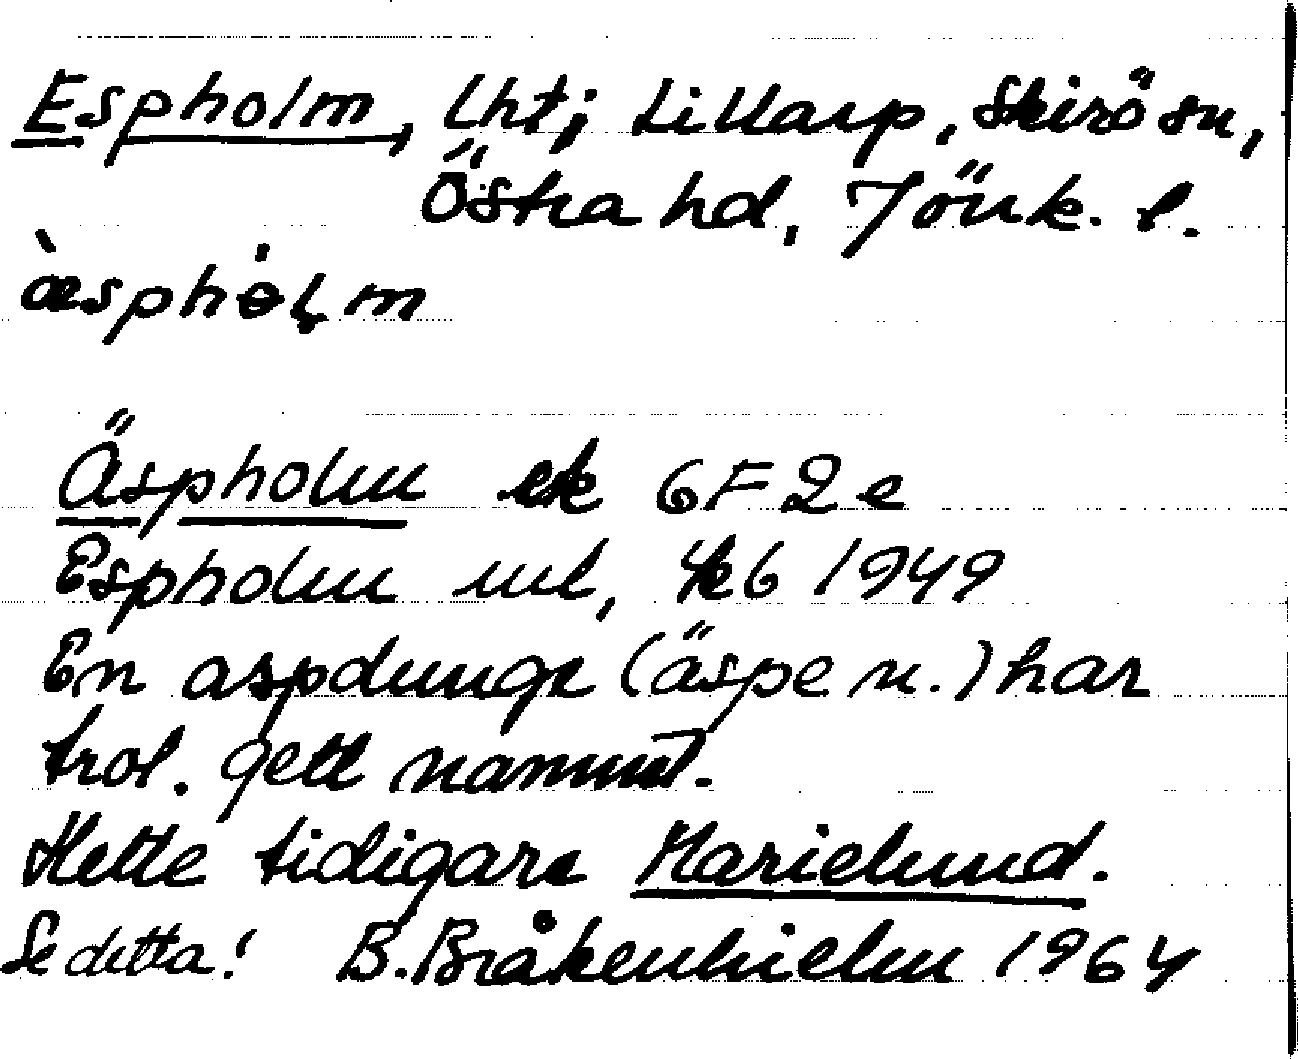 Espholm, lht; Lillarp, Skirö sn,
Östra hd, Jönk. l.
æ̀sphȯl̥m
Äspholm ek 6F2e
Espholm ul, jb 1949
En aspdunge (äspe n.) har
trol. gett namnet.
Hette tidigare Marielund.
Se detta! B. Bråkenhielm 1964